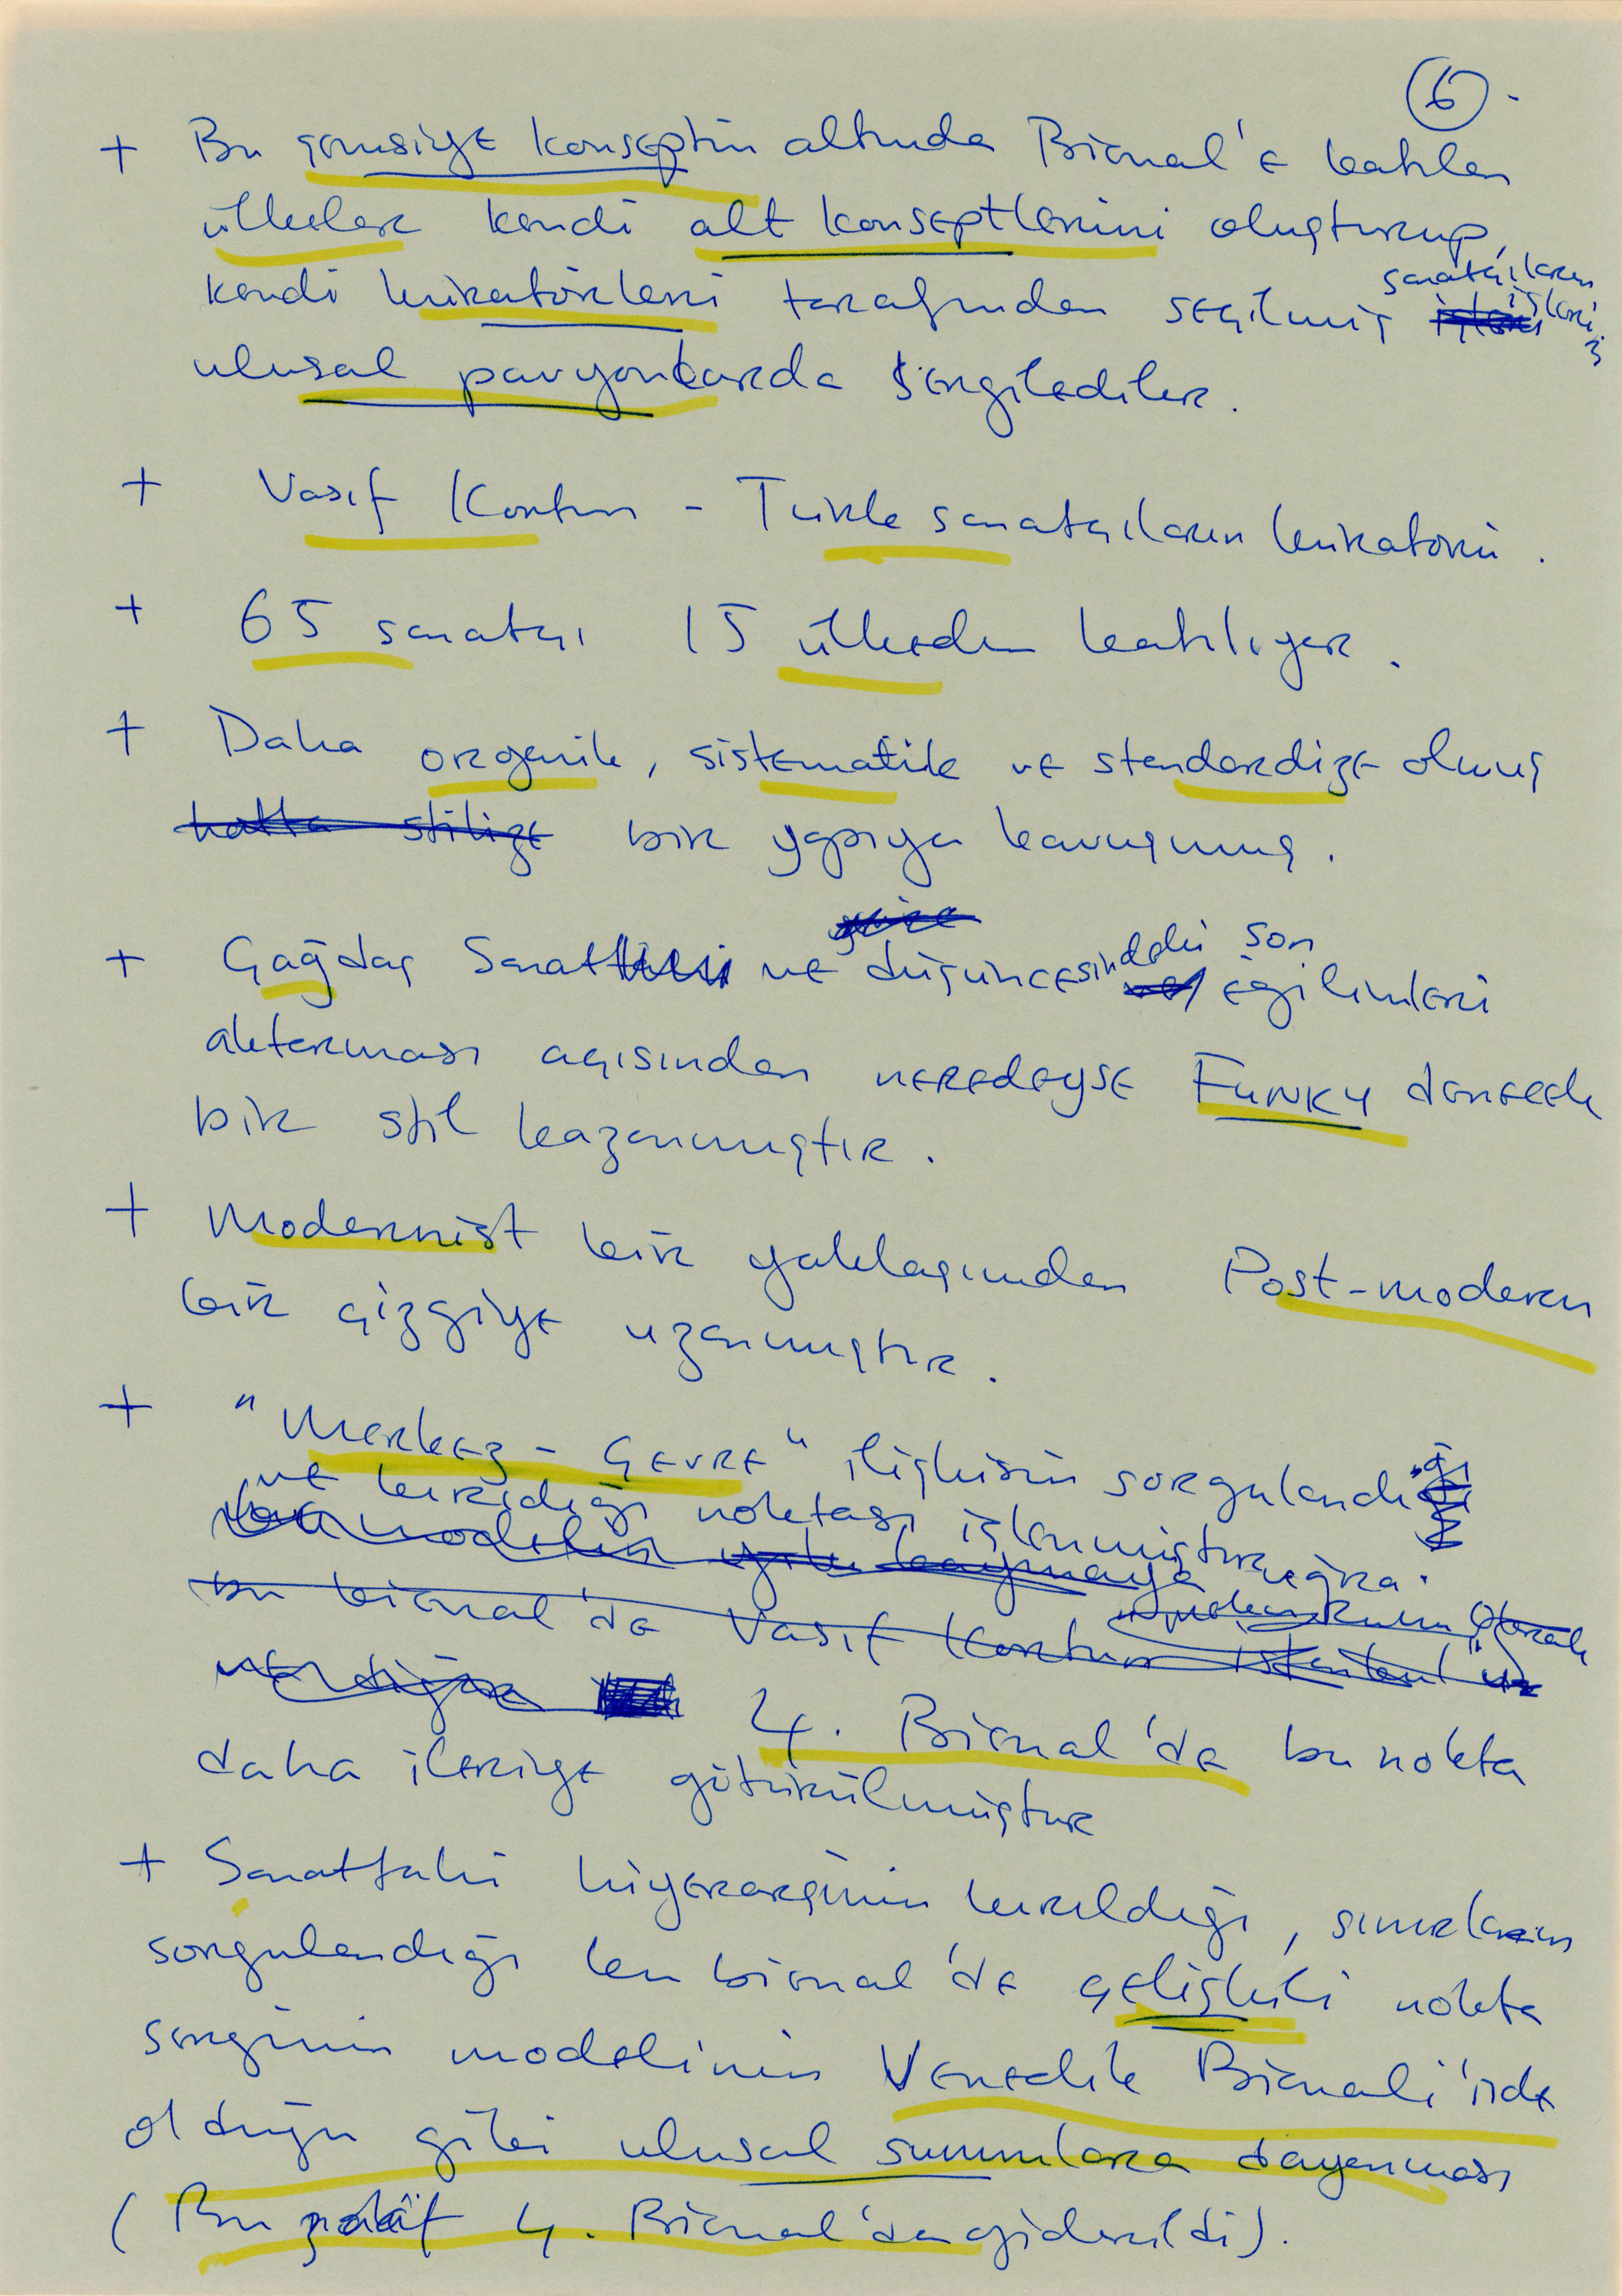 6.
+ Bu şemsiye konseptin altında Bienal'e katılan
ülkeler kendi alt konseptlerini oluşturup,
kendi küratörleri tarafından seçilmiş sanatçıların işlerini
ulusal pavyonlarda sergilediler.
+ Vasıf Kortun - Türk sanatçıların küratörü.
+ 65 sanatçı 15 ülkeden katılıyor.
+ Daha organik, sistematik ve standardize olmuş
hatta stilize bir yapıya kavuşmuş.
+ Çağdaş Sanat ve düşüncesindeki son eğilimleri
aktarması açısından neredeyse FUNKY denecek
bir stil kazanmıştır.
+ Modernist bir yaklaşımdan Post-modern
bir çizgiye uzanmıştır.
+ "Merkez - Çevre" ilişkisin sorgulandığı
ve kırıldığı noktası işlenmiştir
bu bienal'de Vasıf Kortun İstanbul'u
4. Bienal'de bu nokta
daha ileriye götürülmüştür
+ Sanattaki hiyerarşinin kırıldığı, sınırların
sorgulandığı bu bienal'de çelişkili nokta
serginin modelinin Venedik Bienali'nde
olduğu gibi ulusal sunumlara dayanması
(Bu 4. Bienal'de giderildi).